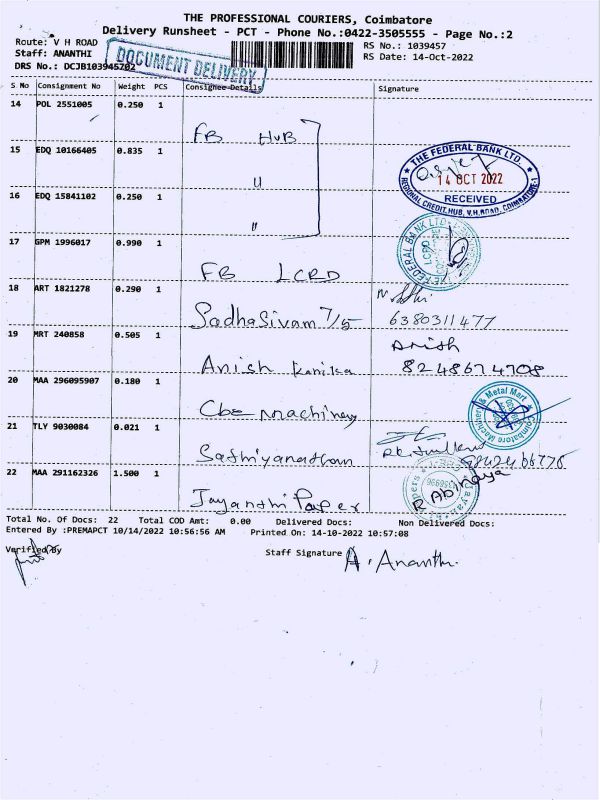 THE PROFESSIONAL COURIERS, Coimbatore
Delivery Runsheet - PCT - Phone No.:0422-3505555 - Page No.:2
Route: V H ROAD
RS No.: 1039457
Staff: ANANTHI
RS Date: 14-Oct-2022
DRS No.: DCJB103945702
DOCUMENT DELIVERY
S No Consignment No Weight PCS Consignee Details Signature
14 POL 2551005 0.250 1
FB HUB
15 EDQ 10166405 0.835 1
"
THE FEDERAL BANK LTD.,
14 OCT 2022
RECEIVED
REGIONAL CREDIT HUB, V.H.ROAD, COIMBATORE-1
16 EDQ 15841102 0.250 1
"
17 GPM 1996017 0.990 1
FB LCRD
FEDERAL BANK LTD
LCRD
18 ART 1821278 0.290 1
Sadhasivam 7/5
6380311477
19 MRT 240858 0.505 1
Anish Kanika
Anish
8248674708
20 MAA 296095907 0.180 1
Cbe Machinery
Coimbatore Machinery & Metal Mart
21 TLY 9030084 0.021 1
Sathiyanatham
22 MAA 291162326 1.500 1
Jayanthi Paper
R Abinaya
Total No. Of Docs: 22 Total COD Amt: 0.00 Delivered Docs: Non Delivered Docs:
Entered By :PREMAPCT 10/14/2022 10:56:56 AM Printed On: 14-10-2022 10:57:08
Verified By
Staff Signature A. Ananthi.